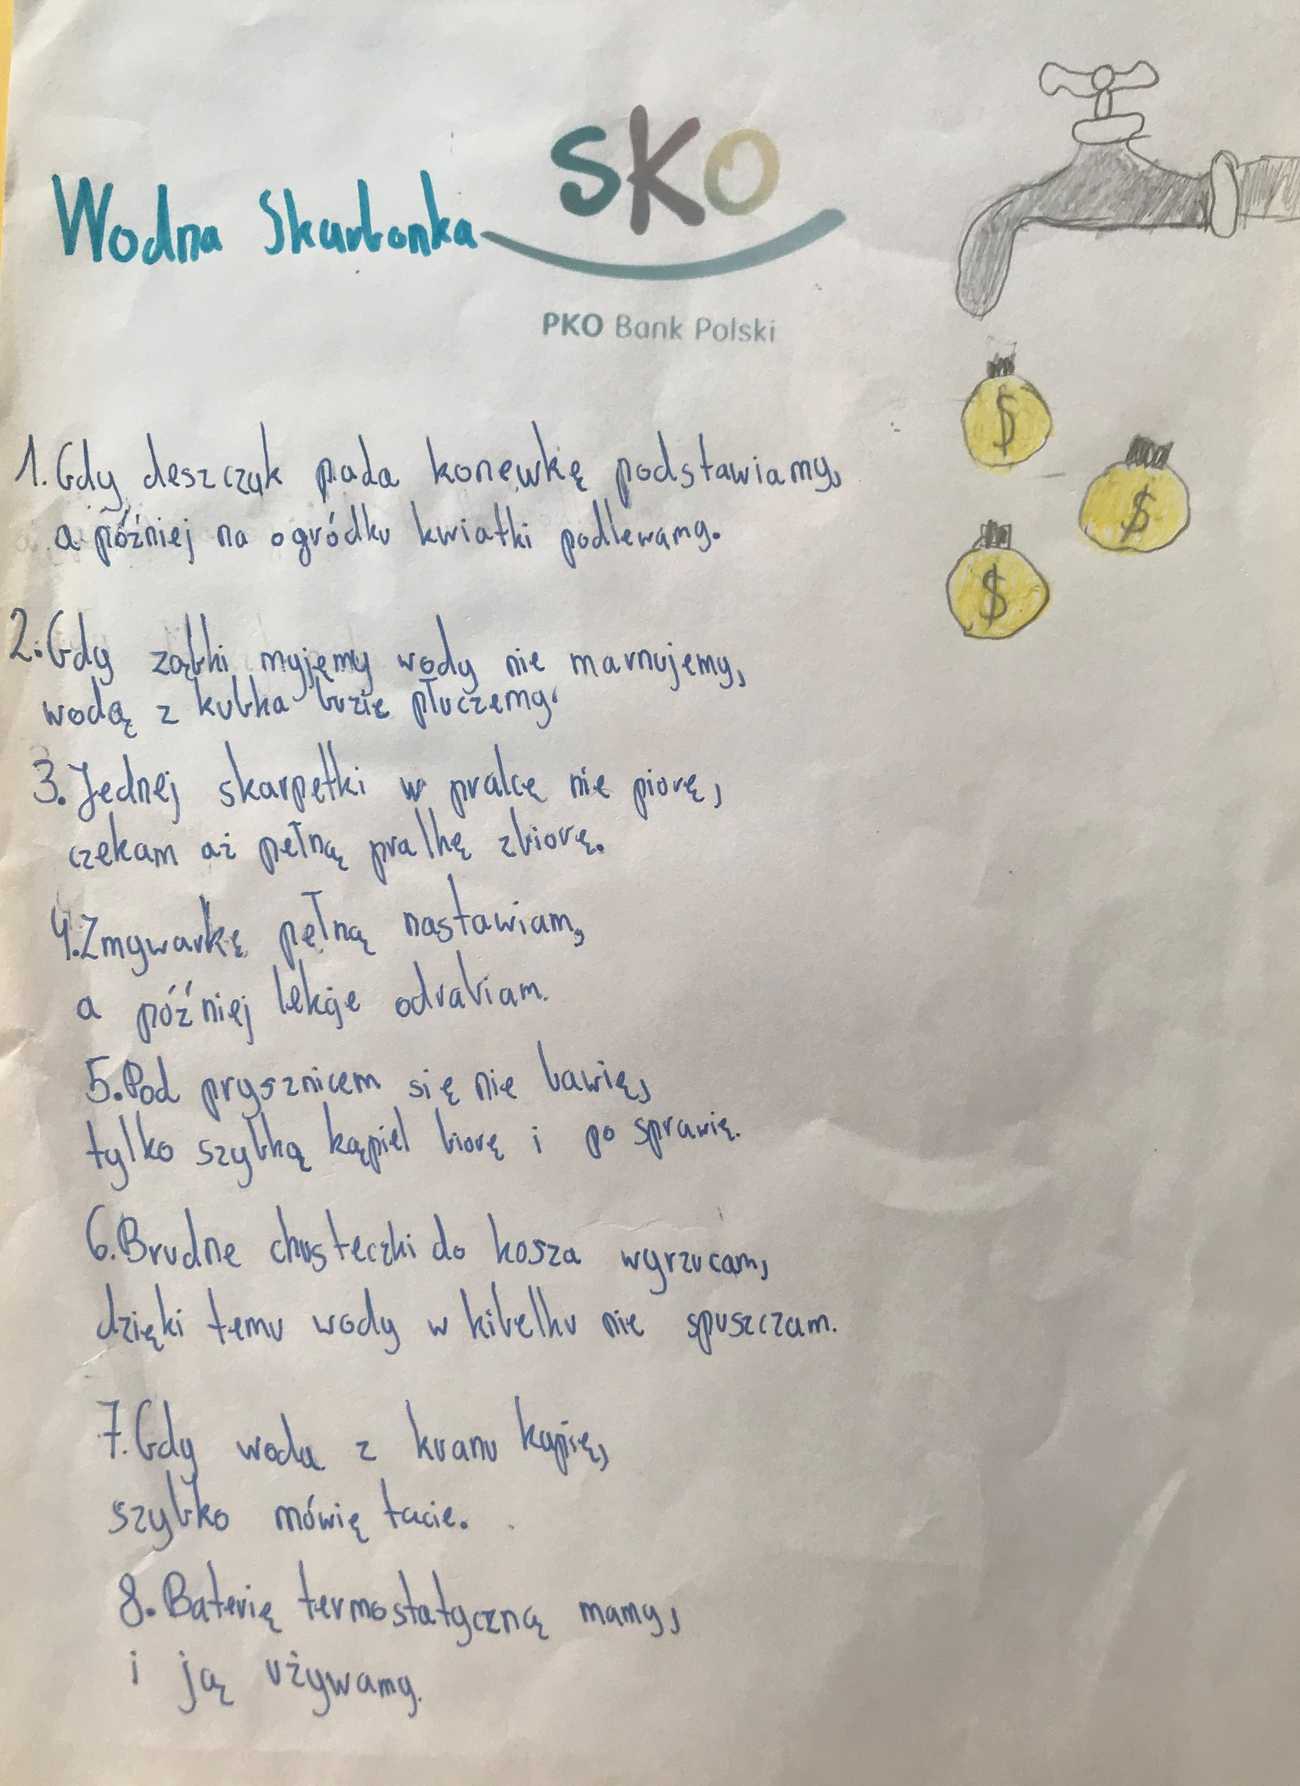 Wodna Skarbonka
SKO
PKO Bank Polski
1. Gdy deszczyk pada konewkę podstawiamy,
a później na ogródku kwiatki podlewamy.
2. Gdy ząbki myjemy wody nie marnujemy,
wodą z kubka buzię płuczemy.
3. Jednej skarpetki w pralce nie piorę,
czekam aż pełną pralkę zbiorę.
4. Zmywarkę pełną nastawiam,
a później lekcje odrabiam.
5. Pod prysznicem się nie bawię,
tylko szybką kąpiel biorę i po sprawię.
6. Brudne chusteczki do kosza wyrzucam,
dzięki temu wody w kibelku nie spuszczam.
7. Gdy woda z kranu kapię,
szybko mówię tacie.
8. Baterię termostatyczną mamy,
i ją używamy.
$
$
$